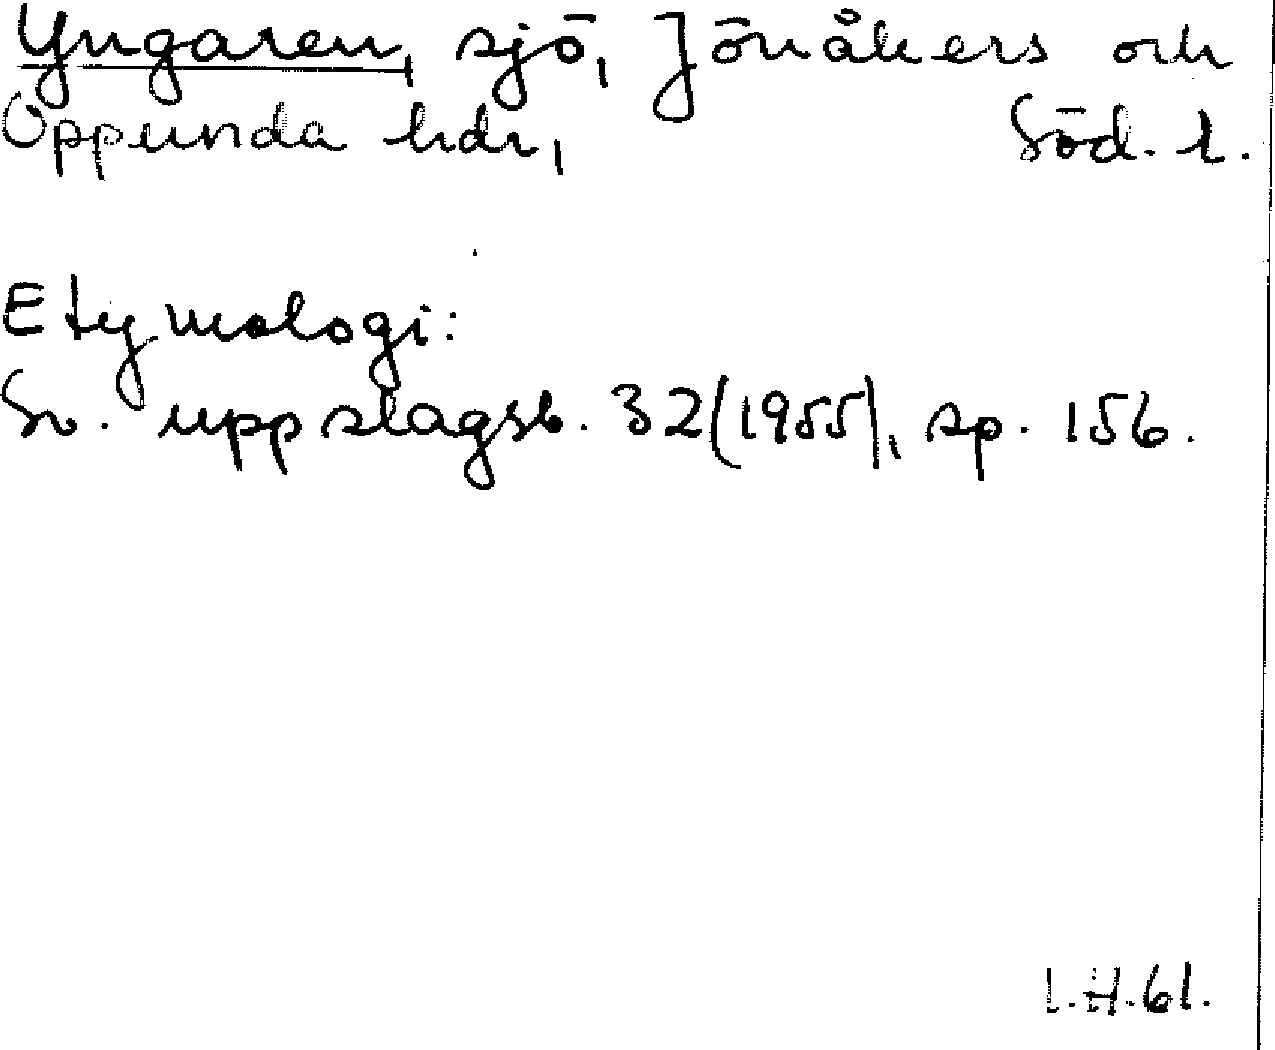 Yngaren, sjö, Jönåkers och
Oppunda hdr, Söd. l.
Etymologi:
Sv. uppslagsb. 32 (1955), sp. 156.
I.H.61.